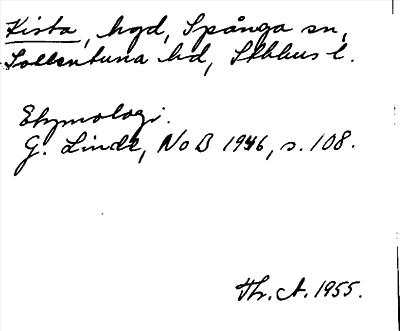 Kista, hgd, Spånga sn,
Sollentuna hd, Sthlms l.
Etymologi.
G. Linde, NoB 1946, s. 108.
Th. A. 1955.